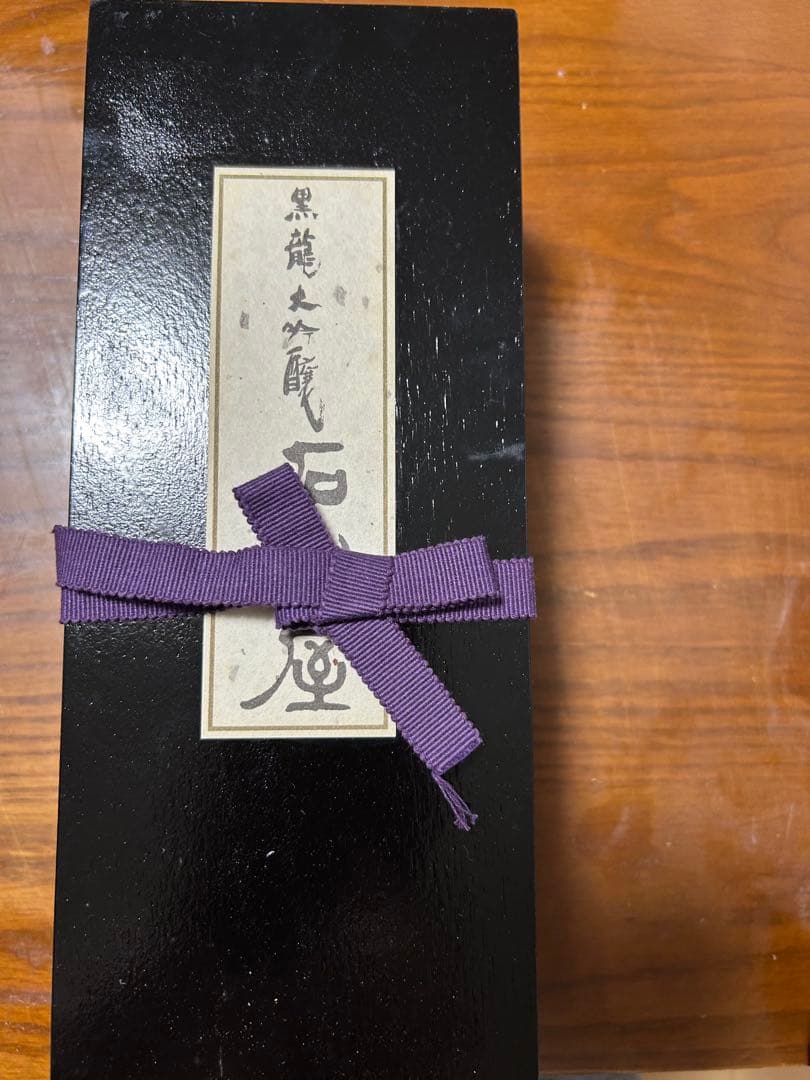 黒龍大吟醸
石
屋